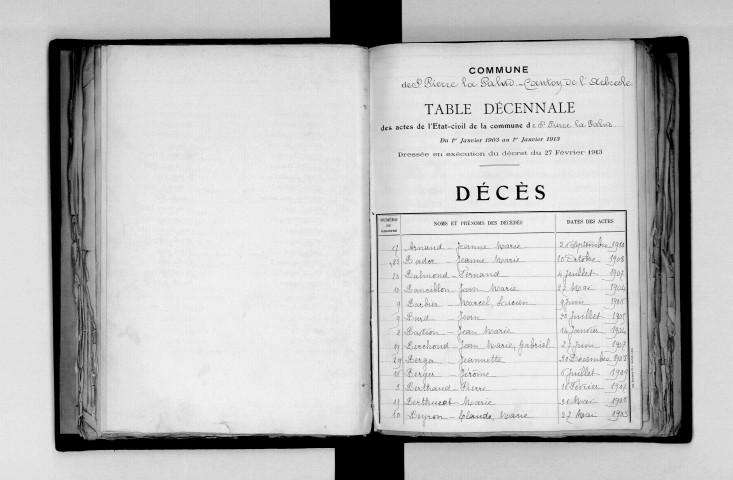 COMMUNE
de St Pierre la Palud - Canton de l'Arbresle
TABLE DÉCENNALE
des actes de l'Etat-civil de la commune de St Pierre la Palud
Du 1er Janvier 1903 au 1er Janvier 1913
Dressée en exécution du décret du 27 Février 1913
DÉCÈS
NUMÉROS NOMS ET PRÉNOMS DES DÉCÉDÉS DATES DES ACTES
17 Arnaud - Jeanne Marie Septembre
Jeanne Marie 10 Octobre 1908
Fernand 4 Juillet 1907
10 Jean Marie Mai 1904
9 Barbier - Marcel, Lucien 9 Juin
9 Jean 20 Juillet 1905
2 Bastion - Jean Marie 14 Janvier 1904
Berchoud - Jean Marie, Gabriel 27 Juin 1907
29 Berger - Jeannette 30 Décembre
Berger - Jérôme Juillet 1909
3 Berthaud - Pierre Février
Marie Mai
10 Beyron - Claude, Marie 27 Mai 1903